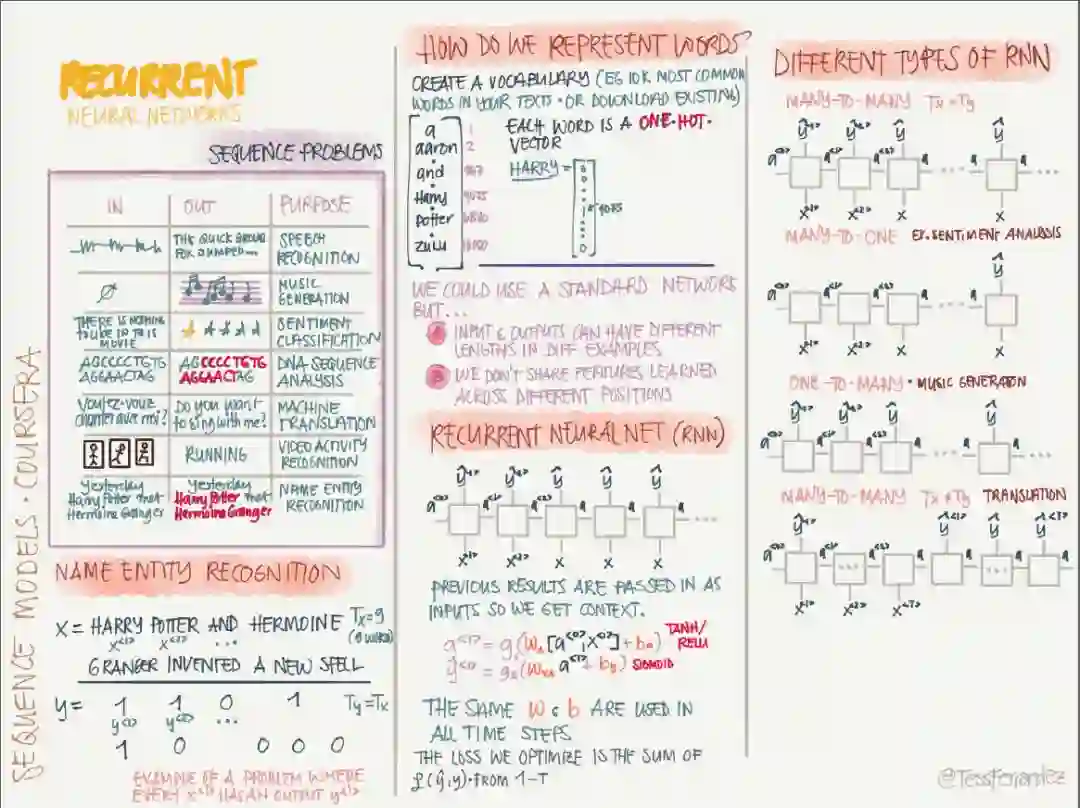 RECURRENT
NEURAL NETWORKS
SEQUENCE PROBLEMS
IN OUT PURPOSE
THE QUICK BROWN FOX JUMPED... SPEECH RECOGNITION
MUSIC GENERATION
THERE IS NOTHING TO LIKE IN THIS MOVIE SENTIMENT CLASSIFICATION
AGCCCCTGTG AGGAACTAG AGCCCCTGTG AGGAACTAG DNA SEQUENCE ANALYSIS
Voulez-vouz chanter avec moi? Do you want to sing with me? MACHINE TRANSLATION
RUNNING VIDEO ACTIVITY RECOGNITION
Yesterday Harry Potter met Hermione Granger Yesterday Harry Potter met Hermione Granger NAME ENTITY RECOGNITION
SEQUENCE MODELS · COURSERA
NAME ENTITY RECOGNITION
X = HARRY POTTER AND HERMOINE Tx=9
x<1> x<2> ... (9 words)
GRANGER INVENTED A NEW SPELL
y = 1 1 0 1 Ty=Tx
y<1> y<2> ...
1 0 0 0 0
EXAMPLE OF A PROBLEM WHERE
EVERY x<i> HAS AN OUTPUT y<i>
HOW DO WE REPRESENT WORDS?
CREATE A VOCABULARY (EG 10K MOST COMMON
WORDS IN YOUR TEXTS · OR DOWNLOAD EXISTING)
a 1
aaron 2
and
Harry 4075
Potter
zulu
EACH WORD IS A ONE·HOT·
VECTOR
HARRY =
4075
WE COULD USE A STANDARD NETWORK
BUT...
A INPUT & OUTPUTS CAN HAVE DIFFERENT
LENGTHS IN DIFF EXAMPLES
B WE DON'T SHARE FEATURES LEARNED
ACROSS DIFFERENT POSITIONS
RECURRENT NEURAL NET (RNN)
ŷ<1> ŷ<2> ŷ ŷ ŷ
a<0> a<1> a<2> a a ...
x<1> x<2> x x x
PREVIOUS RESULTS ARE PASSED IN AS
INPUTS SO WE GET CONTEXT.
a<1> = g₁(Wa[a<0>,x<1>]+ba) TANH/RELU
ŷ<1> = g₂(Wya a<1>+by) SIGMOID
THE SAME W & b ARE USED IN
ALL TIME STEPS
THE LOSS WE OPTIMIZE IS THE SUM OF
L(ŷ,y)·FROM 1-T
DIFFERENT TYPES OF RNN
MANY-TO-MANY Tx=Ty
ŷ<1> ŷ<2> ŷ ŷ
a<0> a<1> a<2> a ... a ...
x<1> x<2> x x
MANY-TO-ONE EX. SENTIMENT ANALYSIS
ŷ
a<0> a a a ... a
x<1> x<2> x x
ONE-TO-MANY · MUSIC GENERATION
ŷ<1> ŷ<2> ŷ ŷ
a<0> a<1> a<2> a ... a ...
MANY-TO-MANY Tx≠Ty TRANSLATION
ŷ<1> ŷ<1> ŷ ŷ<T>
a<0> a<1> ... a<2> a a ... a
x<1> x<2> x<T>
@TessFerrandez